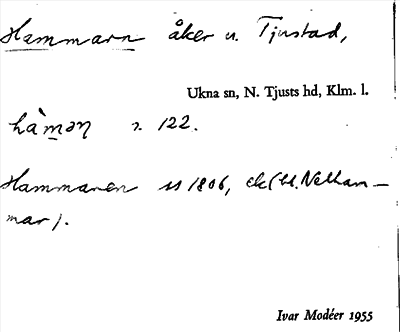 Hammarn åker u. Tjustad,
Ukna sn, N. Tjusts hd, Klm. l.
hàməɳ 2. 122.
Hammaren 1806, (bl. Nelham-
mar).
Ivar Modéer 1955